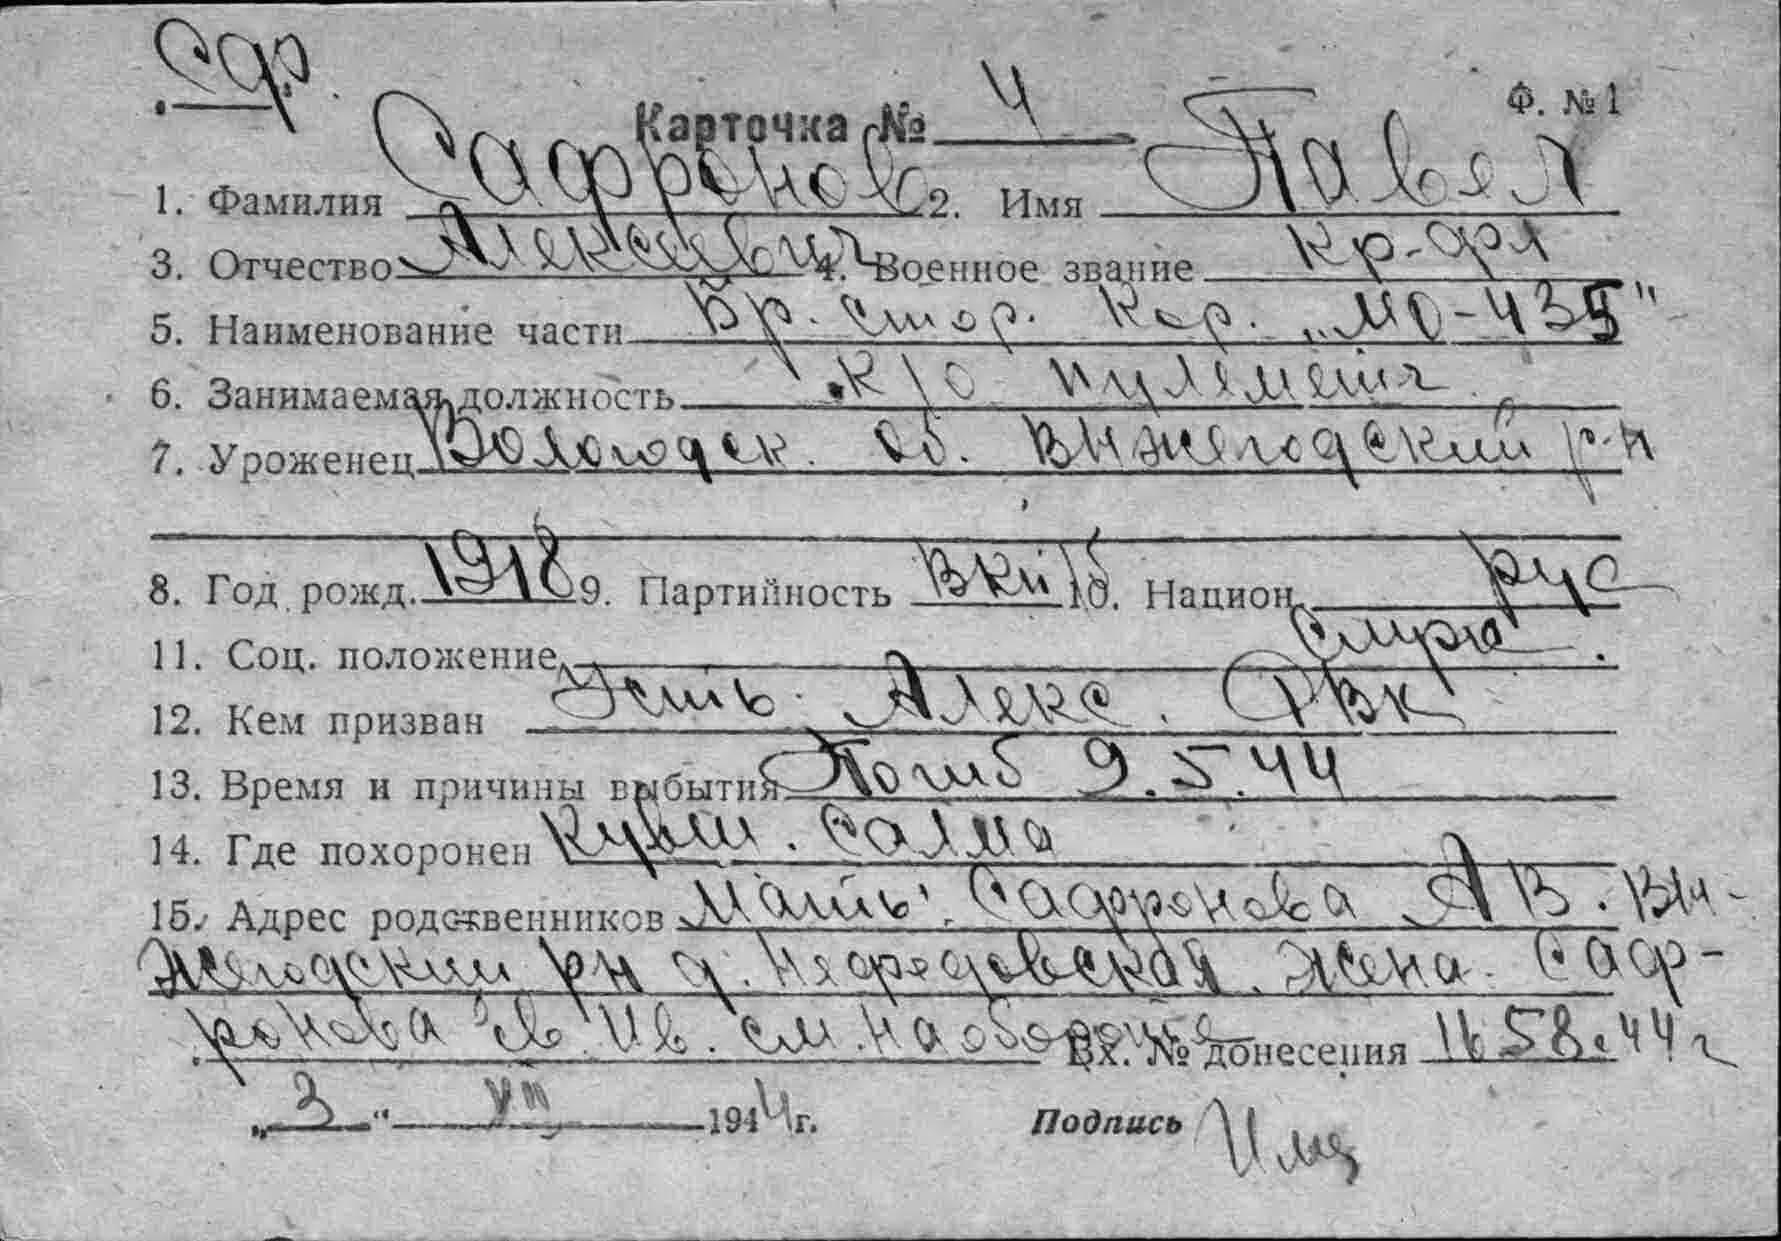 Саф
Карточка № 4 Ф. № 1
1. Фамилия Сафронов 2. Имя Павел
3. Отчество Алексеевич 4. Военное звание кр-фл
5. Наименование части Бр. стор. кор. „МО-435"
6. Занимаемая должность к/о пулеметч.
7. Уроженец Вологодск. об. Вижегодский р-н
8. Год рожд. 1918 9. Партийность ВКПб 10. Национ. рус
11. Соц. положение служ.
12. Кем призван Усть. Алекс. РВК
13. Время и причины выбытия Погиб 9.5.44
14. Где похоронен Кувш. Салма
15. Адрес родственников Мать: Сафронова А В. Ви-
жегодский рн д. Нефедовская. Жена. Саф-
ронова Ев. Ив. см. на обороте Вх. № донесения 1658.44г
„3" VIII 1944г. Подпись